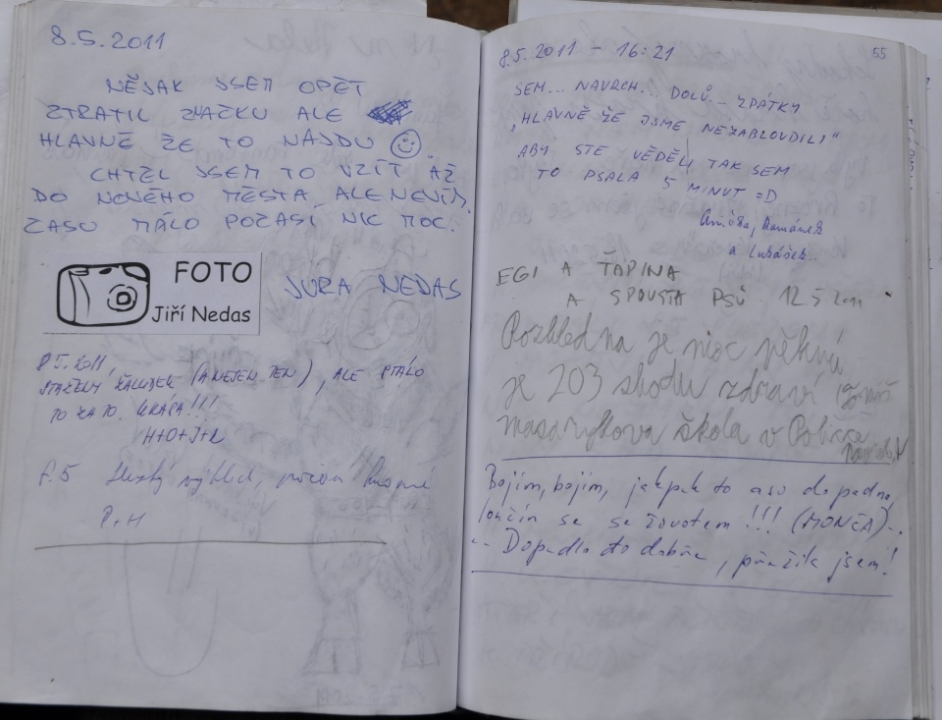 8.5.2011
NĚJAK JSEM OPĚT
ZTRATIL ZNAČKU ALE
HLAVNĚ ŽE TO NAJDU
CHTĚL JSEM TO VZÍT AŽ
DO NOVÉHO MĚSTA, ALE NEVÍM.
ČASU MÁLO POČASÍ NIC MOC.
FOTO
Jiří Nedas
JURA NEDAS
8.5.2011,
ŽALUDEK (A NEJEN TEN), ALE STÁLO
TO ZA TO. KRÁSA!!!
H+O+J+
8.5 Hezký výhled,
P+H
55
8.5.2011 - 16:21
SEM... NAVRCH. DOLŮ - ZPÁTKY
"HLAVNĚ ŽE JSME NEZABLOUDILI"
ABY STE VĚDĚLI TAK SEM
TO PSALA 5 MINUT =D
Anička, Románek
a Lukášek
EGI A ŤAPINA
A SPOUSTA PSŮ 12 5 2011
Rozhledna je moc pěkná
je 203 shodu zdraví
masarykova škola v Poličce
Bojím, bojím, jakpak to asi dopadne,
loučím se se životem!!! (MONČA)..
.. Dopadlo to dobře, přežila jsem!